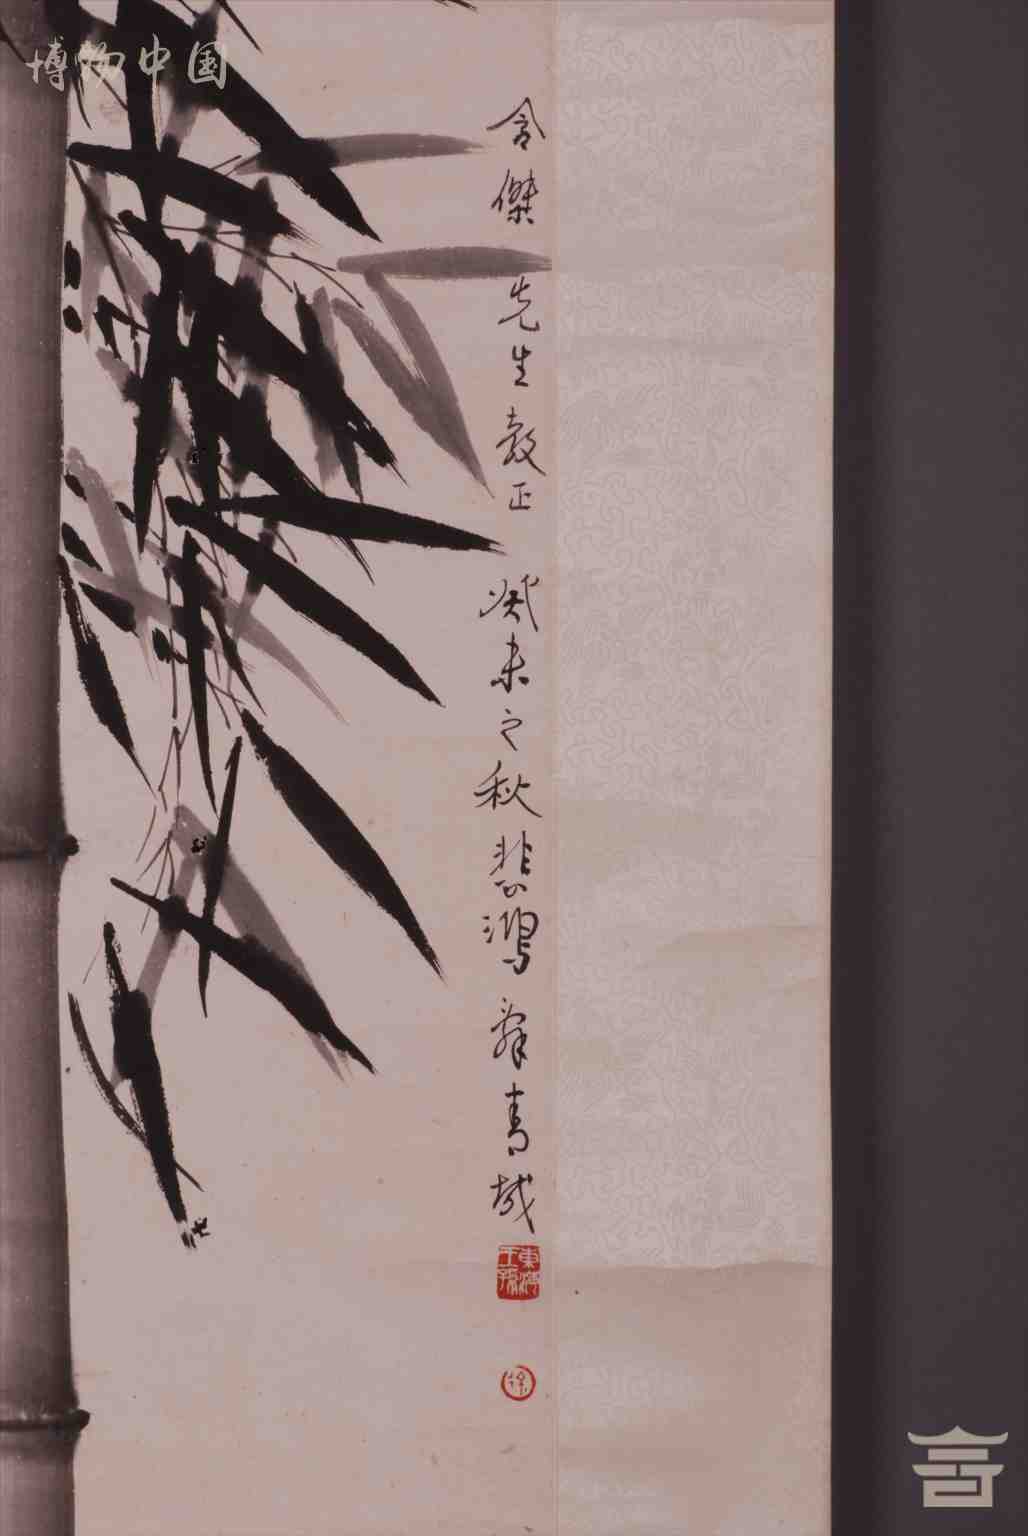 博物中国
含傑 先生教正 癸未之秋悲鴻 客青城
東海
王孫
徐